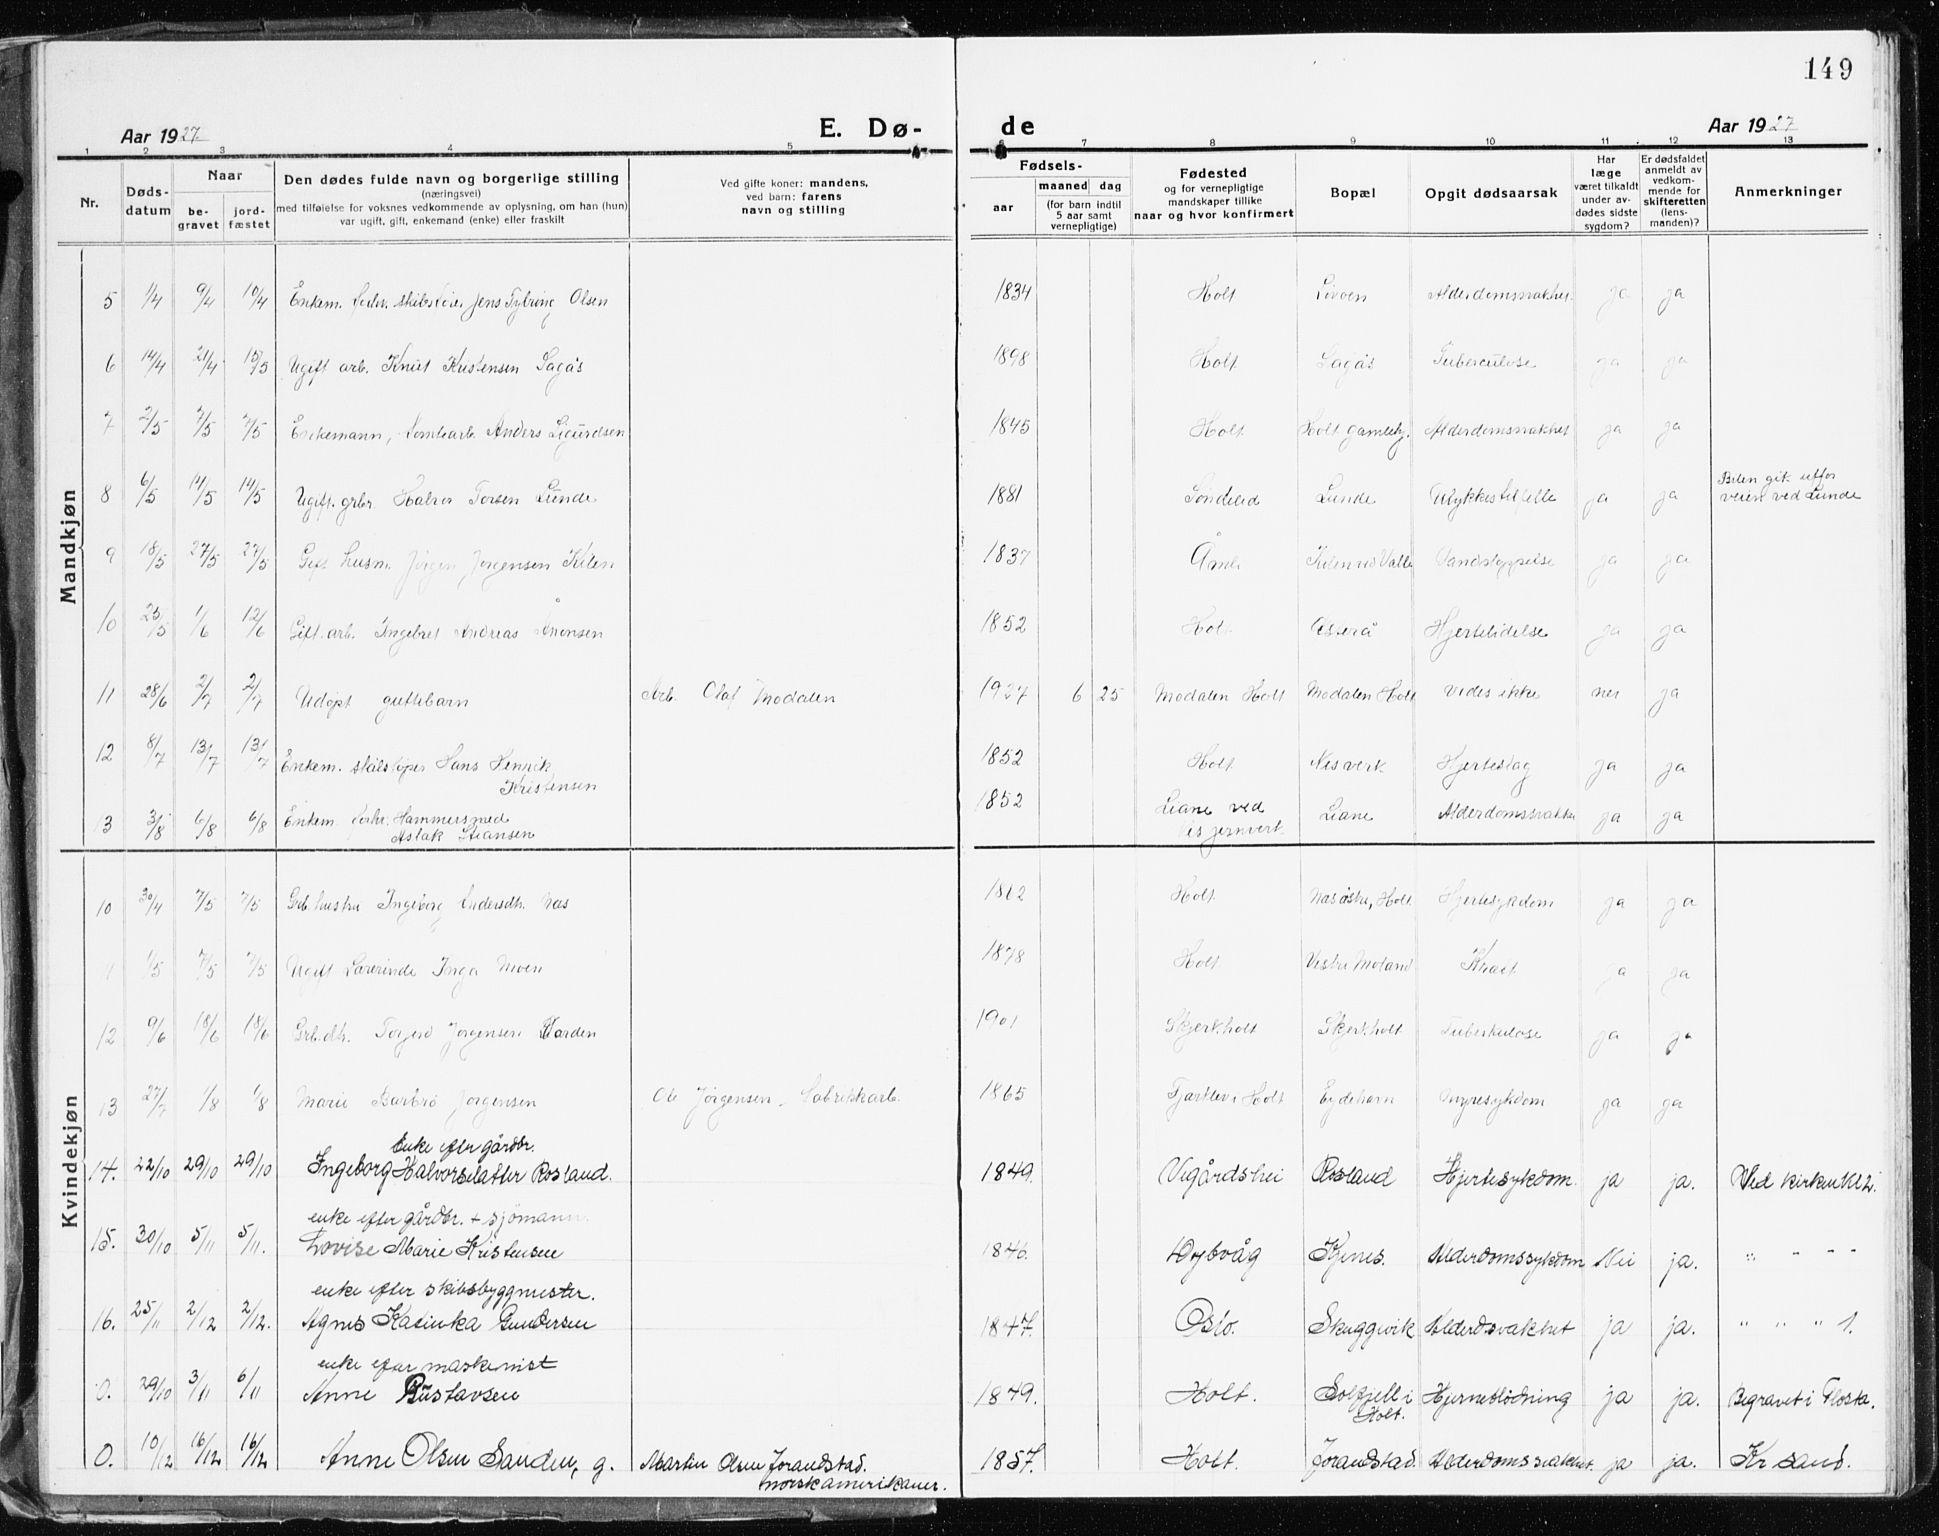 149
Aar 1927.
E. Dø-
de
Aar 1927
1 2 3 4 5 6 7 8 9 10 11 12 13
Nr.
Døds-
datum
Naar
be-
gravet
jord-
fæstet
Den dødes fulde navn og borgerlige stilling
(næringsvei)
med tilføielse for voksnes vedkommende av oplysning, om han (hun)
var ugift, gift, enkemand (enke) eller fraskilt
Ved gifte koner: mandens,
ved barn: farens
navn og stilling
Fødsels-
aar
maaned dag
(for barn indtil
5 aar samt
vernepligtige)
Fødested
og for vernepligtige
mandskaper tillike
naar og hvor konfirmert
Bopæl
Opgit dødsaarsak
Har
læge
været tilkaldt
under av-
dødes sidste
sygdom?
Er dødsfaldet
anmeldt av
vedkom-
mende for
skifteretten
(lens-
manden)?
Anmerkninger
Mandkjøn
5 1/4 9/4 10/4 Enkem. forhv. skibsfører Jens Tybring Olsen 1834 Holt Alderdomssvakhet ja ja
6 14/4 21/4 15/5 Ugift arb. Knut Kristensen Lagås 1898 Holt Lagås Tuberculose ja ja
7 2/5 7/5 7/5 Enkemann, tomtearb. Anders Sigurdsen 1845 Holt Holt gamlehj. Alderdomssvakhet ja ja
8 6/5 14/5 14/5 Ugift. grbr. Halvor Torsen Lunde 1881 Søndeled Lunde Ulykkestilfelle ja ja Bilen gik utfor
veien ved Lunde
9 18/5 27/5 27/5 Gift husm. Jørgen Jørgensen Kilen 1837 Åmli Kilen ved Valle Vandstoppelse ja ja
10 25/5 1/6 12/6 Gift. arb. Ingebret Andreas Ånonsen 1852 Holt Osterå Hjertelidelse ja ja
11 28/6 2/7 2/7 Udøpt guttebarn Arb. Olaf Modalen 1927 6 25 Modalen Holt Modalen Holt vides ikke nei ja
12 8/7 13/7 13/7 Enkem. Hans Henrik
Kristensen 1852 Holt Nesverk Hjerteslag ja ja
13 3/8 6/8 6/8 Enkem. forhv. Hammersmed
Aslak Stiansen 1852 Liane ved
Nes jernverk Liane Alderdomssvakhe ja ja
Kvindekjøn
10 30/4 7/5 7/5 Grb. hustru Ingeborg Andersdtr. Næs 1862 Holt Næs østre, Holt Hjertesykdom ja ja
1 1/5 7/5 7/5 Ugift Lærerinde Inga Moen 1878 Holt Vestre Moland Kræft ja ja
12 9/6 18/6 18/6 Grb. dtr. Torjerd Jørgensen Garden 1901 Skjerkholt Skjerkholt Tuberkulose ja ja
13 27/7 1/8 1/8 Marie Barbro Jørgensen Ole Jørgensen, Fabrikkarb. 1865 Fjærklev i Holt Eydehavn Nyresykdom ja ja
Enke efter gårdbr.
14. 22/10 29/10 29/10 Ingeborg Halvorsdatter Rosland. 1849. Vegårdshei Rosland Hjertesykdom. ja ja. Ved kirken Kl 2.
enke efter gårdbr. + sjømann.
15. 30/10 5/11 5/11. Lovise Marie Kristensen 1846. Dybvåg Kjenes. Alderdomssykdom Nei ja. " " " "
enke efter skibsbyggmester.
16. 25/11 2/12 2/12. Agnes Katinka Gundersen 1847. Oslo. Skuggvik Alderdsvakhet ja ja. " " " 1.
enke efter maskinist
0. 29/10 3/11 6/11 Anne Gustavsen 1849. Holt. Solfjell i
Holt. Hjerneblødning ja ja. Begravet i Flosta.
0. 10/12 16/12 16/12 Anne Olsen Sanden, g. Martin Olsen Jorandstad.
norskamerikaner. 1857. Holt. Jorandstad. Alderdomssvakhet. ja ja. Kr sand.